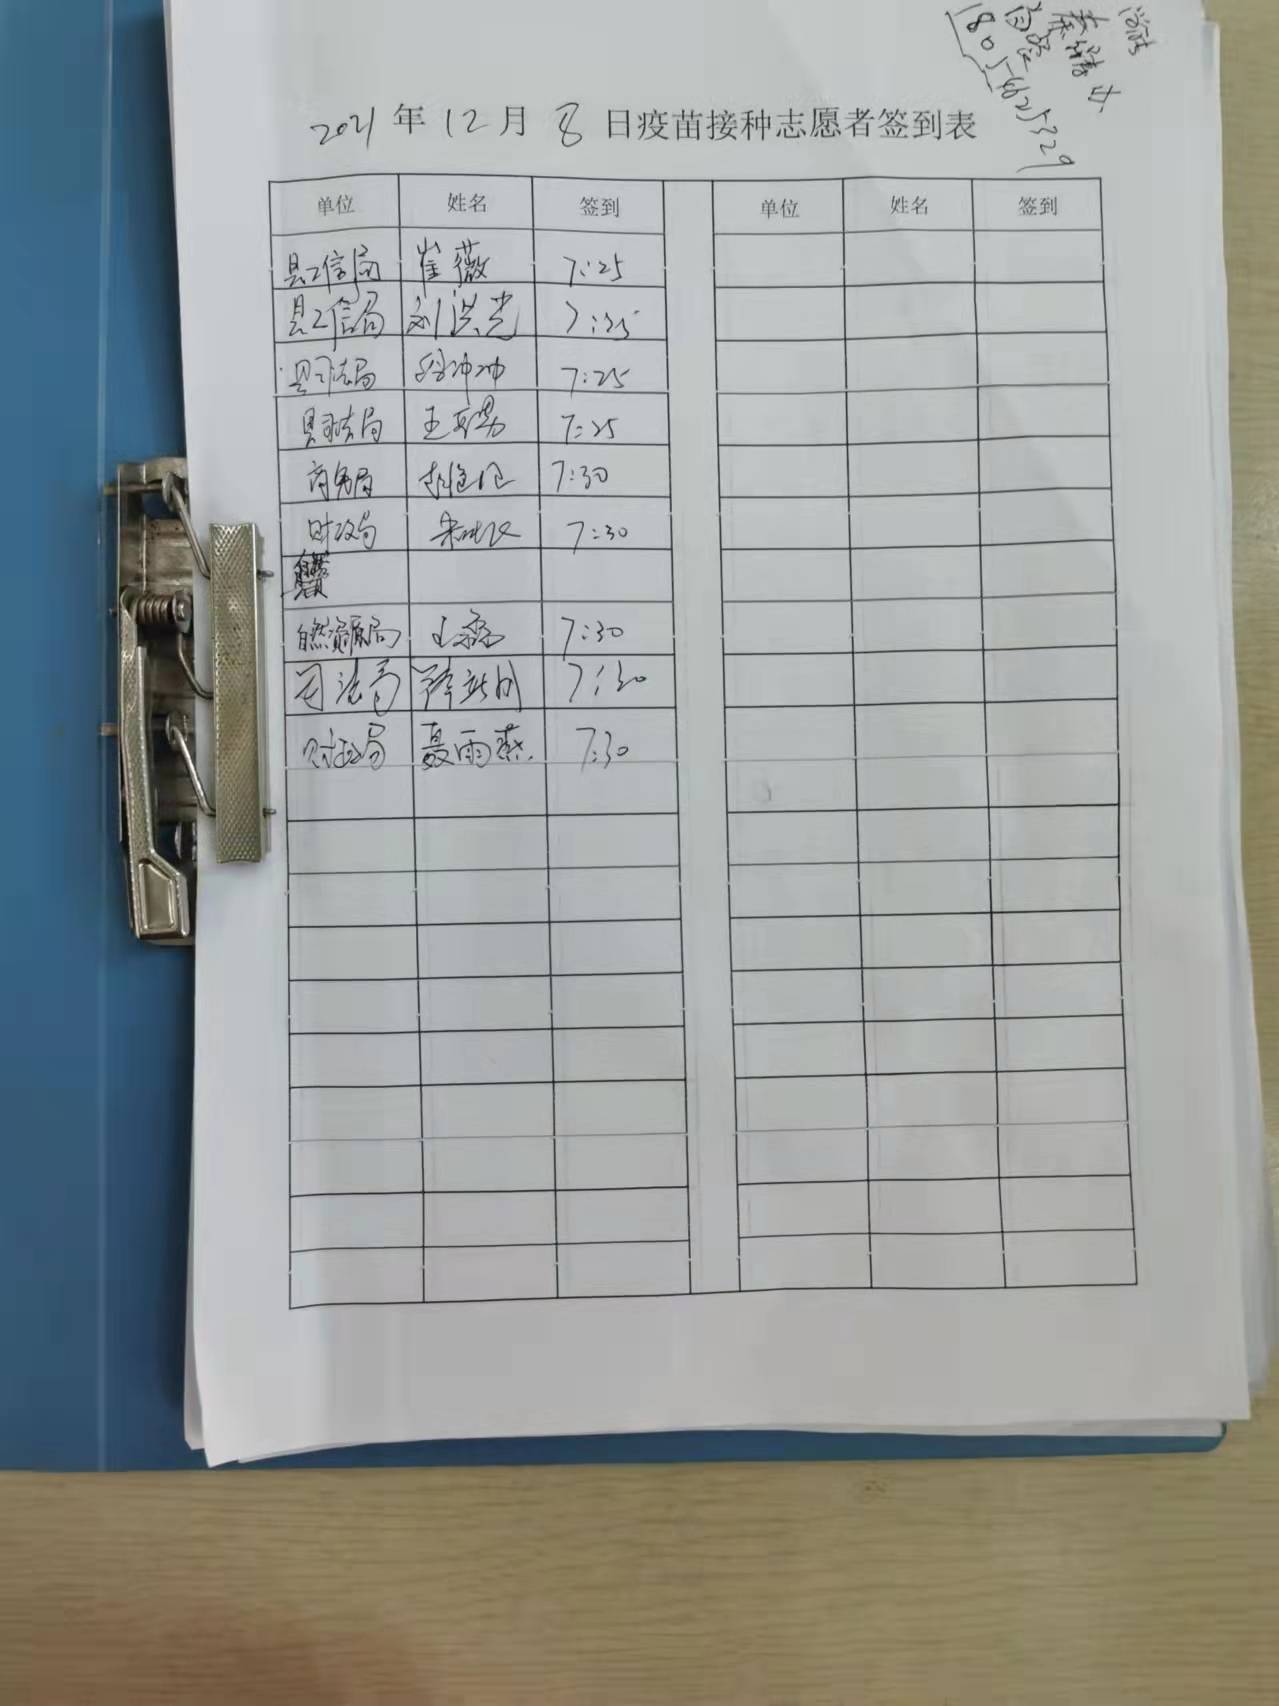 2021年12月8日疫苗接种志愿者签到表
单位 姓名 签到 单位 姓名 签到
县工信局 崔薇 7:25
县工信局 刘洪光 7:25
县司法局 7:25
县司法局 王亚男 7:25
商务局 7:30
财政局 7:30
自然资源局 王森 7:30
司法局 7:30
财政局 聂雨燕 7:30